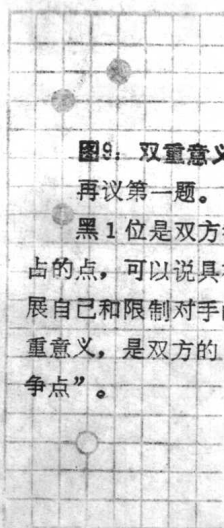 图9：双重意义
再议第一题。
黑1位是双方
占的点，可以说具
展自己和限制对手
重意义，是双方的
争点”。